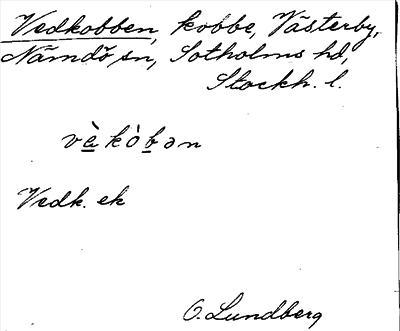 Vedkobben, kobbe, Västerby,
Nämdö sn, Sotholms hd,
Stockh. l.
vὲkòbən
Vedk. ek
O. Lundberg